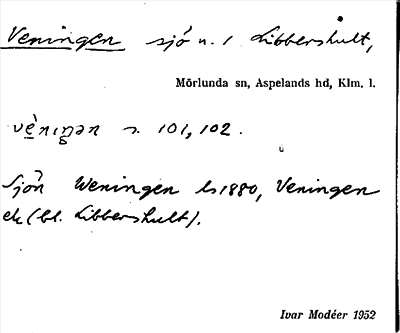 Veningen sjö n. 1 Libbershult,
Mörlunda sn, Aspelands hd, Klm. l.
vè̱niŋən s. 101, 102.
Sjön Weningen ls 1880, Veningen
ek (bl. Libbershult).
Ivar Modéer 1952